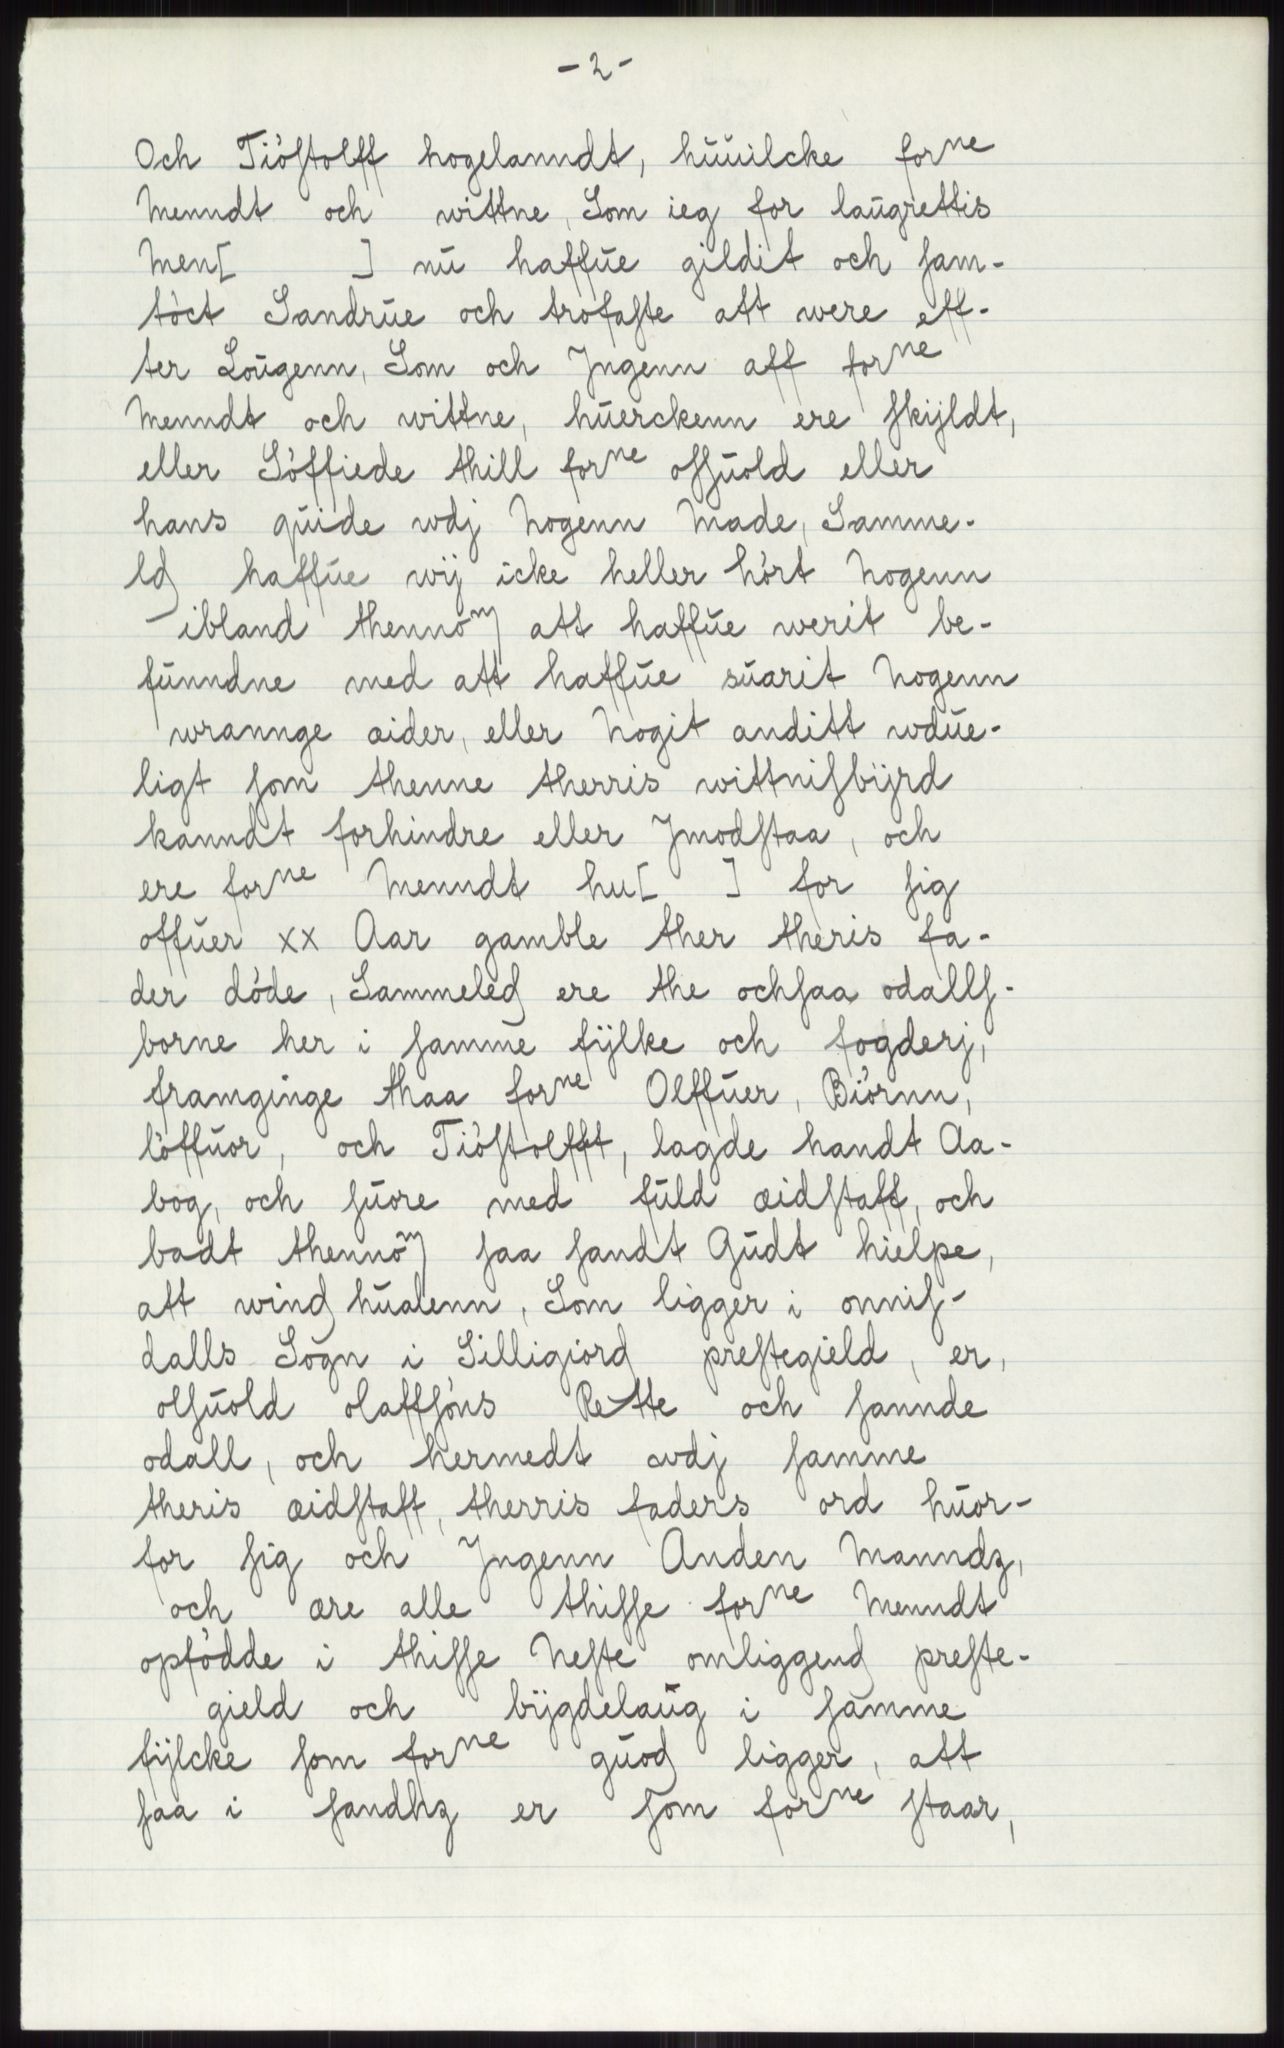 - 2 -
Och Tiöstolff hogelanndt, huuilcke forne
Menndt och wittne, Som ieg for laugrettis
Men[ ] nu haffue gildit och sam-
töct Sandrue och trofaste att were eff-
ter Lougenn, Som och Jngenn aff forne
Menndt och wittne, huerckenn ere skijldt,
eller Söffiede thill forne osuold eller
hans quide wdj Nogenn Made, Samme-
led haffue wij icke heller hört Nogenn
ibland thennöm att haffue werit be-
funndne med att haffue suarit Nogenn
wrannge æider, eller Nogit anditt wdue-
ligt som thenne therris wittnisbijrd
kanndt forhindre eller Jmodstaa, och
ere forne Menndt hu[ ] for sig
offuer xx Aar gamble ther theris fa-
der döde, Sammeled ere the ochsaa odalls-
borne her i samme fijlke och fogderj,
framginge thaa forne Olffuer, Biörnn,
löffuor, och Tiöstolfft, lagde handt Aa-
bog, och suore med fuld æidstaff, och
badt thennöm saa sandt Gudt hielpe,
att wind hualenn, Som ligger i onnis-
dalls Sogn i Silligiord prestegield, er,
osuold olaffsöns Rette och sannde
odall, och hermedt wdj samme
theris æidstaff, therris faders ord huor-
for sig och Jngenn Anden Manndz,
och ære alle thisse forne Menndt
opfödde i thisse Neste omliggend preste-
gield och bijgdelaug i samme
fijlcke som forne guod ligger, att
saa i sandhz er som forne staar,